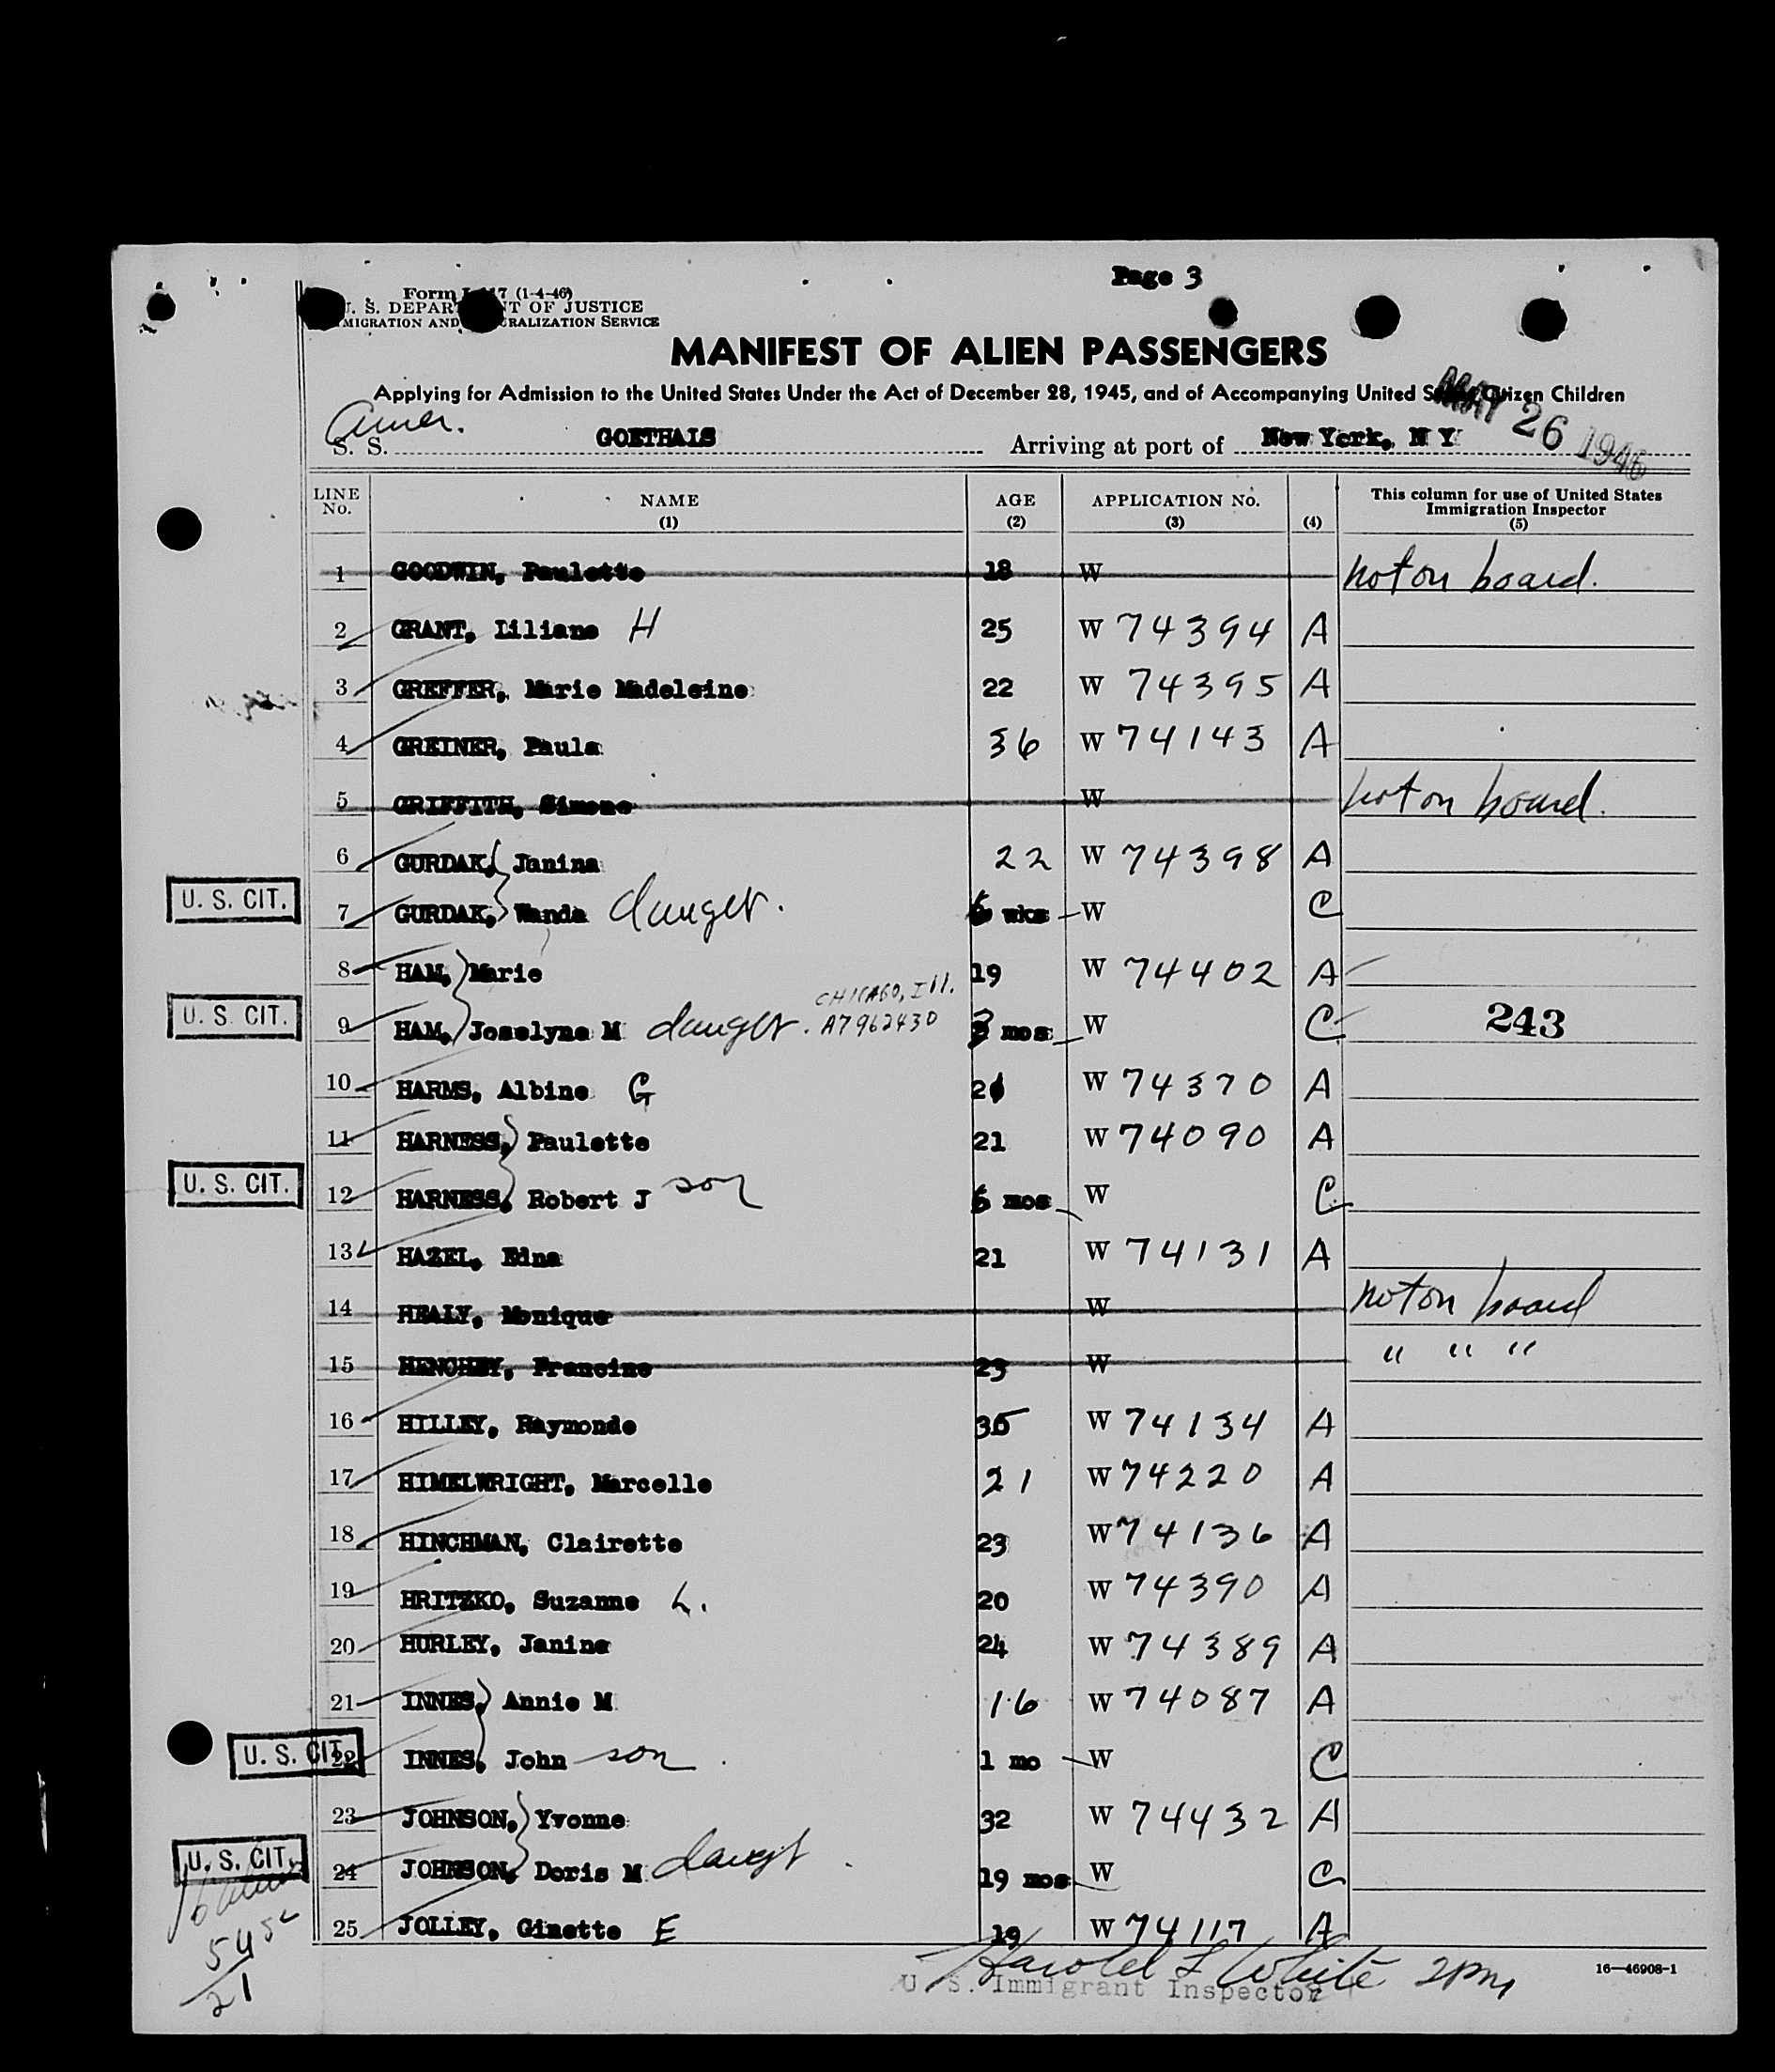 Page 3
Form I-417 (1-4-46)
U. S. DEPARTMENT OF JUSTICE
IMMIGRATION AND NATURALIZATION SERVICE
MANIFEST OF ALIEN PASSENGERS
Applying for Admission to the United States Under the Act of December 28, 1945, and of Accompanying United States Citizen Children
MAY 26 1946
Amer.
S. S. GOETHALS Arriving at port of New York, N Y
LINE No. NAME (1) AGE (2) APPLICATION No. (3) (4) This column for use of United States Immigration Inspector (5)
1 GOODWIN, Paulette 18 W not on board.
2 GRANT, Liliane H 25 W 74394 A
3 GREFFER, Marie Madeleine 22 W 74395 A
4 GREINER, Paula 36 W 74143 A
5 GRIFFITH, Simone W not on board.
6 GURDAK, Janina 22 W 74398 A
U. S. CIT. 7 GURDAK, Wanda daught. 6 wks W C
8 HAM, Marie 19 W 74402 A
CHICAGO, Ill.
U. S. CIT. 9 HAM, Joselyne M daught. A7962430 mos W C 243
10 HARMS, Albine G W 74370 A
11 HARNESS, Paulette 21 W 74090 A
U. S. CIT. 12 HARNESS, Robert J son 6 mos W C
13 HAZEL, Edna 21 W 74131 A
14 HEALY, Monique W not on board
15 HENCHEY, Francine 23 W " " "
16 HILLEY, Raymonde 35 W 74134 A
17 HIMELWRIGHT, Marcelle 21 W 74220 A
18 HINCHMAN, Clairette 23 W 74136 A
19 HRITZKO, Suzanne L. 20 W 74390 A
20 HURLEY, Janine 24 W 74389 A
21 INNES, Annie M 16 W 74087 A
U. S. CIT. 22 INNES, John son 1 mo W C
23 JOHNSON, Yvonne 32 W 74432 A
U. S. CIT. 24 JOHNSON, Doris M daught. 19 mos W C
25 JOLLEY, Ginette E 19 W 74117 A
16 aliens
5 USC
21
Harold L White 2pm
U. S. Immigrant Inspector
16—46908-1